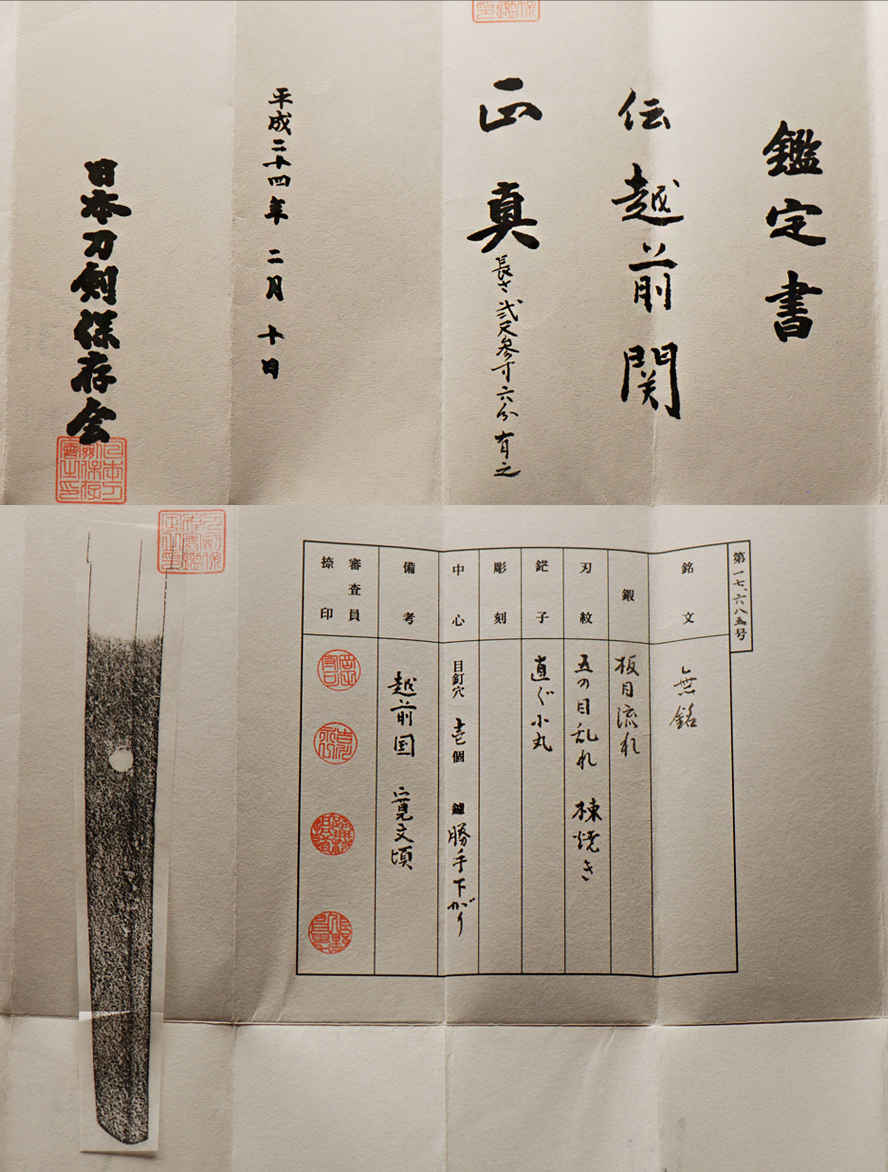 鑑定書
伝 越前関
正真 長さ 弐尺参寸六分 有之
平成二十四年 二月 十日
日本刀剣保存会
第一七、六八五号
銘文
無銘
鍜
板目流れ
刃紋
五の目乱れ 棟焼き
鋩子
直ぐ小丸
彫刻
中心
目釘穴 壱個 鑢 勝手下がり
備考
越前国 寛文頃
審査員
捺印